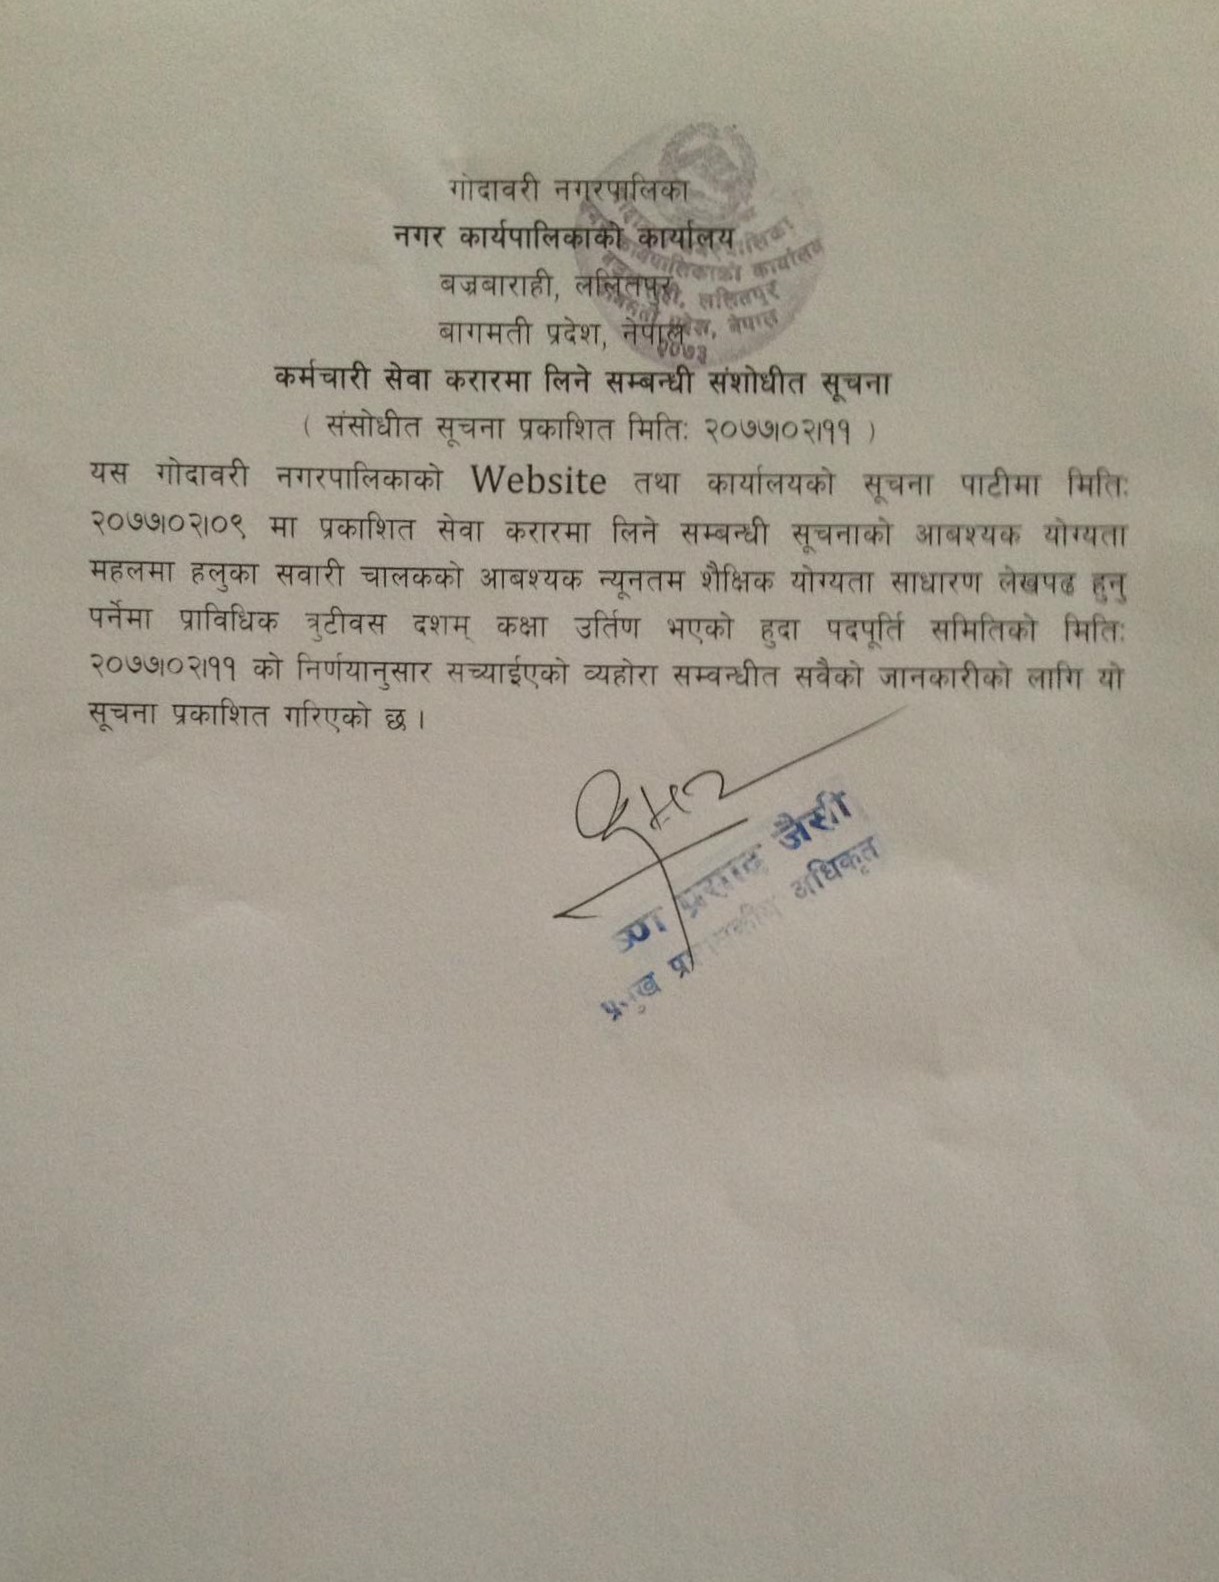 गोदावरी नगरपालिका
नगर कार्यपालिकाको कार्यालय
बज्रबाराही, ललितपुर
बागमती प्रदेश, नेपाल
कर्मचारी सेवा करारमा लिने सम्बन्धी संशोधीत सूचना
( संसोधीत सूचना प्रकाशित मितिः २०७७।०२।११ )
यस गोदावरी नगरपालिकाको Website तथा कार्यालयको सूचना पाटीमा मितिः
२०७७।०२।०९ मा प्रकाशित सेवा करारमा लिने सम्बन्धी सूचनाको आबश्यक योग्यता
महलमा हलुका सवारी चालकको आबश्यक न्यूनतम शैक्षिक योग्यता साधारण लेखपढ हुनु
पर्नेमा प्राविधिक त्रुटीवस दशम् कक्षा उर्तिण भएको हुदा पदपूर्ति समितिको मितिः
२०७७।०२।११ को निर्णयानुसार सच्याईएको व्यहोरा सम्वन्धीत सवैको जानकारीको लागि यो
सूचना प्रकाशित गरिएको छ ।
प्रसाद जैसी
प्रमुख अधिकृत
नगरपालिका
कार्यपालिकाको कार्यालय
ललितपुर
प्रदेश, नेपाल
२०७३